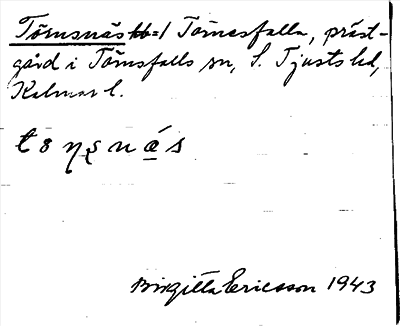 Törnsnäs = Törnesfalla, präst-
gård i Törnsfalls sn, S. Tjusts hd,
Kalmar l.
Birgitta Ericsson 1943